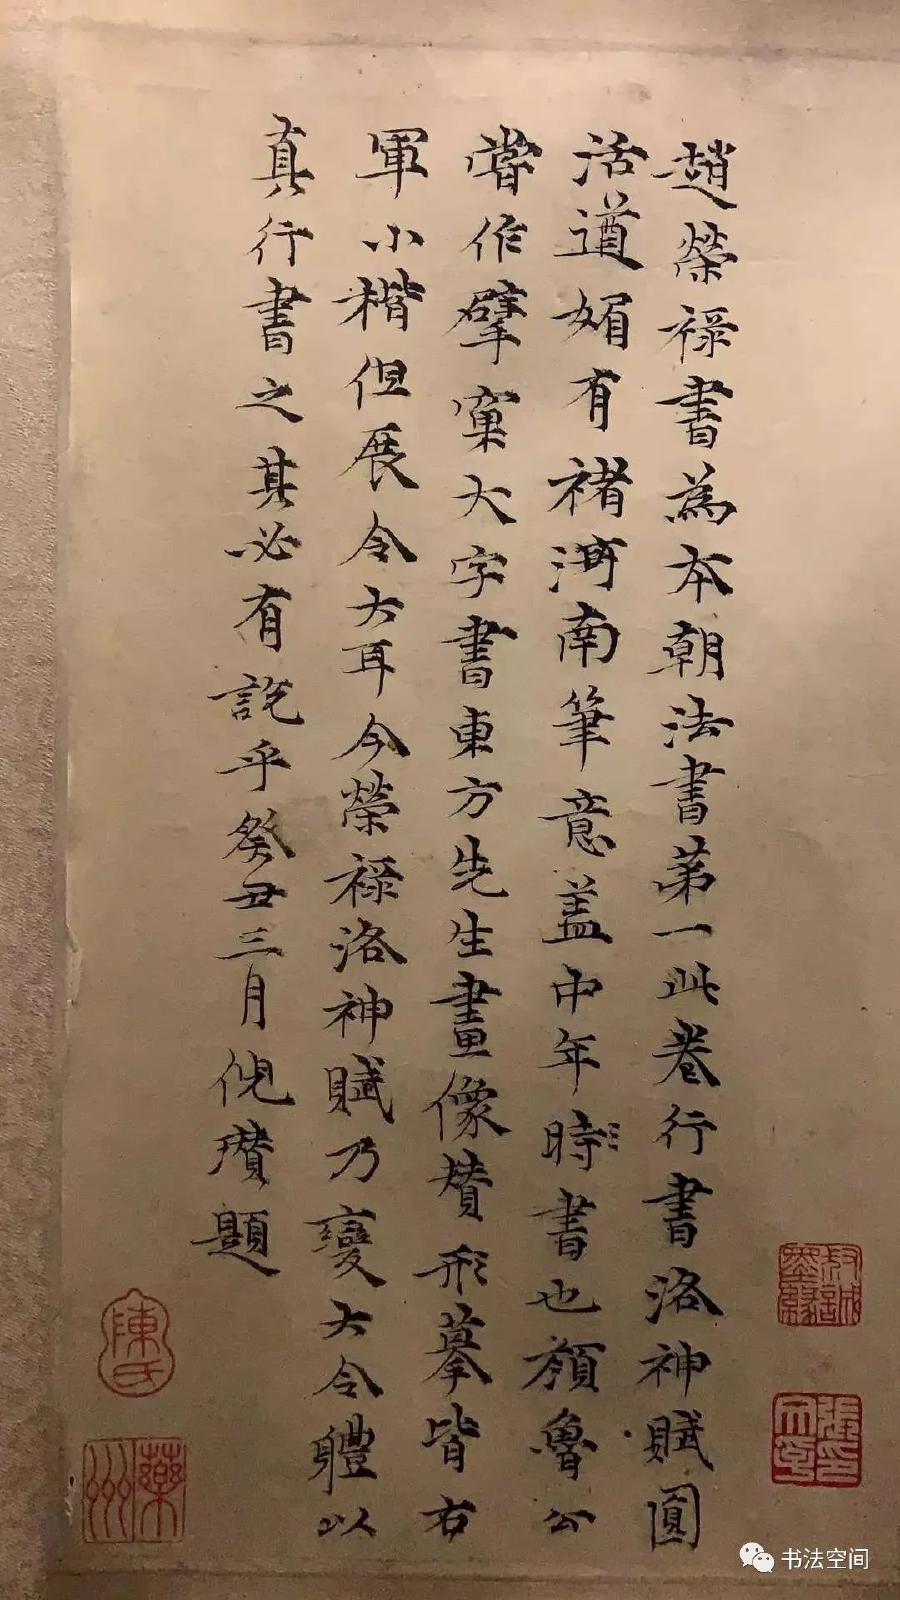 趙榮禄書為本朝法書第一此卷行書洛神賦圓
活遒媚有褚河南筆意盖中年時書也顏魯公
嘗作擘窠大字書東方先生畫像賛形摹皆右
軍小楷但展令大耳今榮禄洛神賦乃變大令體以
真行書之其必有説乎癸丑三月倪瓚題
陳氏
藥州
书法空间